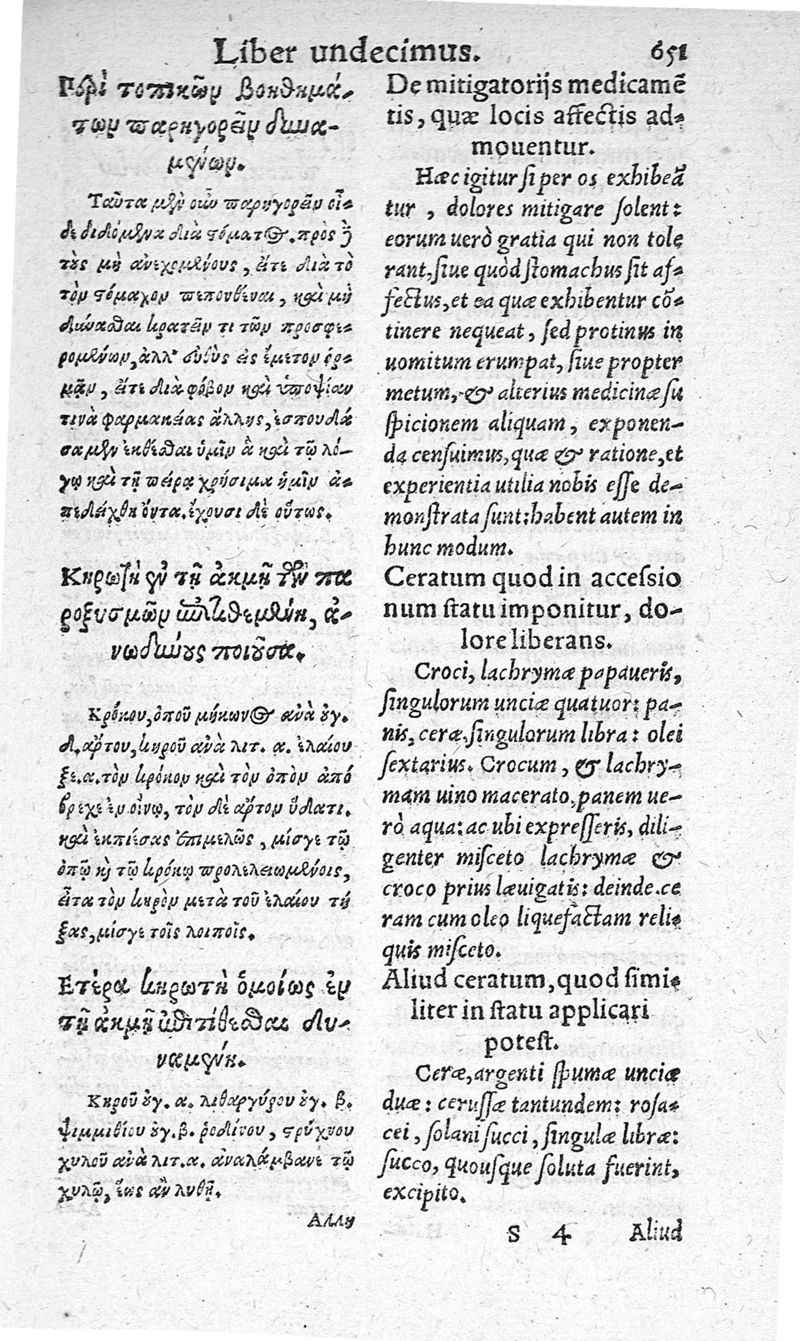 Liber undecimus. 651
Περὶ τοπικῶν βοηθημά-
των παρηγορεῖν δυνα-
μένων.
Ταῦτα μὲν οὖν παρηγορεῖν οἶ-
δε διδόμενα διὰ στόματος. πρὸς δὲ
τοὺς μὴ ἀνεχομένους, εἴτε διὰ τὸ
τὸν στόμαχον πεπονθέναι, καὶ μὴ
δύνασθαι κρατεῖν τι τῶν προσφε-
ρομένων, ἀλλ' εὐθὺς εἰς ἔμετον ὁρ-
μᾷν, εἴτε διὰ φόβον καὶ ὑποψίαν
τινὰ φαρμακείας ἄλλης, ἐσπουδά
σαμεν ἐκθέσθαι ὑμῖν ἃ καὶ τῷ λό-
γῳ καὶ τῇ πείρᾳ χρήσιμα ἡμῖν ἀ-
πεδείχθη ὄντα. ἔχουσι δὲ οὕτως.
Κηρωτὴ ἐν τῇ ἀκμῇ τῶν πα
ροξυσμῶν ἐπιτιθεμένη, ἀ-
νωδύνους ποιοῦσα.
Κρόκου, ὀποῦ μήκωνος ἀνὰ ουγ.
δ. ἄρτου, κηροῦ ἀνὰ λιτ. α. ἐλαίου
ξε. α. τὸν κρόκον καὶ τὸν ὀπὸν ἀπό
βρεχε ἐν οἴνῳ, τὸν δὲ ἄρτον ὕδατι.
καὶ ἐκπιέσας ἐπιμελῶς, μίσγε τῷ
ὀπῷ καὶ τῷ κρόκῳ προλελειωμένοις,
εἶτα τὸν κηρὸν μετὰ τοῦ ἐλαίου τή
ξας, μίσγε τοῖς λοιποῖς.
Ετέρα κηρωτὴ ὁμοίως ἐν
τῇ ἀκμῇ ἐπιτίθεσθαι δυ-
ναμένη.
Κηροῦ ουγ. α. λιθαργύρου ουγ. β.
ψιμμιθίου ουγ. β. ῥοδίνου, στρύχνου
χυλοῦ ἀνὰ λιτ. α. ἀναλάμβανε τῷ
χυλῷ, ἕως ἂν λυθῇ.
Αλλη
De mitigatorijs medicamẽ
tis, quæ locis affectis ad-
mouentur.
Hæc igitur si per os exhibeã
tur, dolores mitigare solent:
eorum uerò gratia qui non tole
rant, siue quòd stomachus sit af-
fectus, et ea quæ exhibentur cõ-
tinere nequeat, sed protinus in
uomitum erumpat, siue propter
metum, & alterius medicinæ su
spicionem aliquam, exponen-
da censuimus, quæ & ratione, et
experientia utilia nobis esse de-
monstrata sunt: habent autem in
hunc modum.
Ceratum quod in accessio
num statu imponitur, do-
lore liberans.
Croci, lachrymæ papaueris,
singulorum unciæ quatuor: pa-
nis, ceræ, singulorum libra: olei
sextarius. Crocum, & lachry-
mam uino macerato, panem ue-
rò aqua: ac ubi expresseris, dili-
genter misceto lachrymæ &
croco prius læuigatis: deinde ce
ram cum oleo liquefactam reli-
quis misceto.
Aliud ceratum, quod simi-
liter in statu applicari
potest.
Ceræ, argenti spumæ unciæ
duæ: cerussæ tantundem: rosa-
cei, solani succi, singulæ libræ:
succo, quousque soluta fuerint,
excipito.
S 4 Aliud